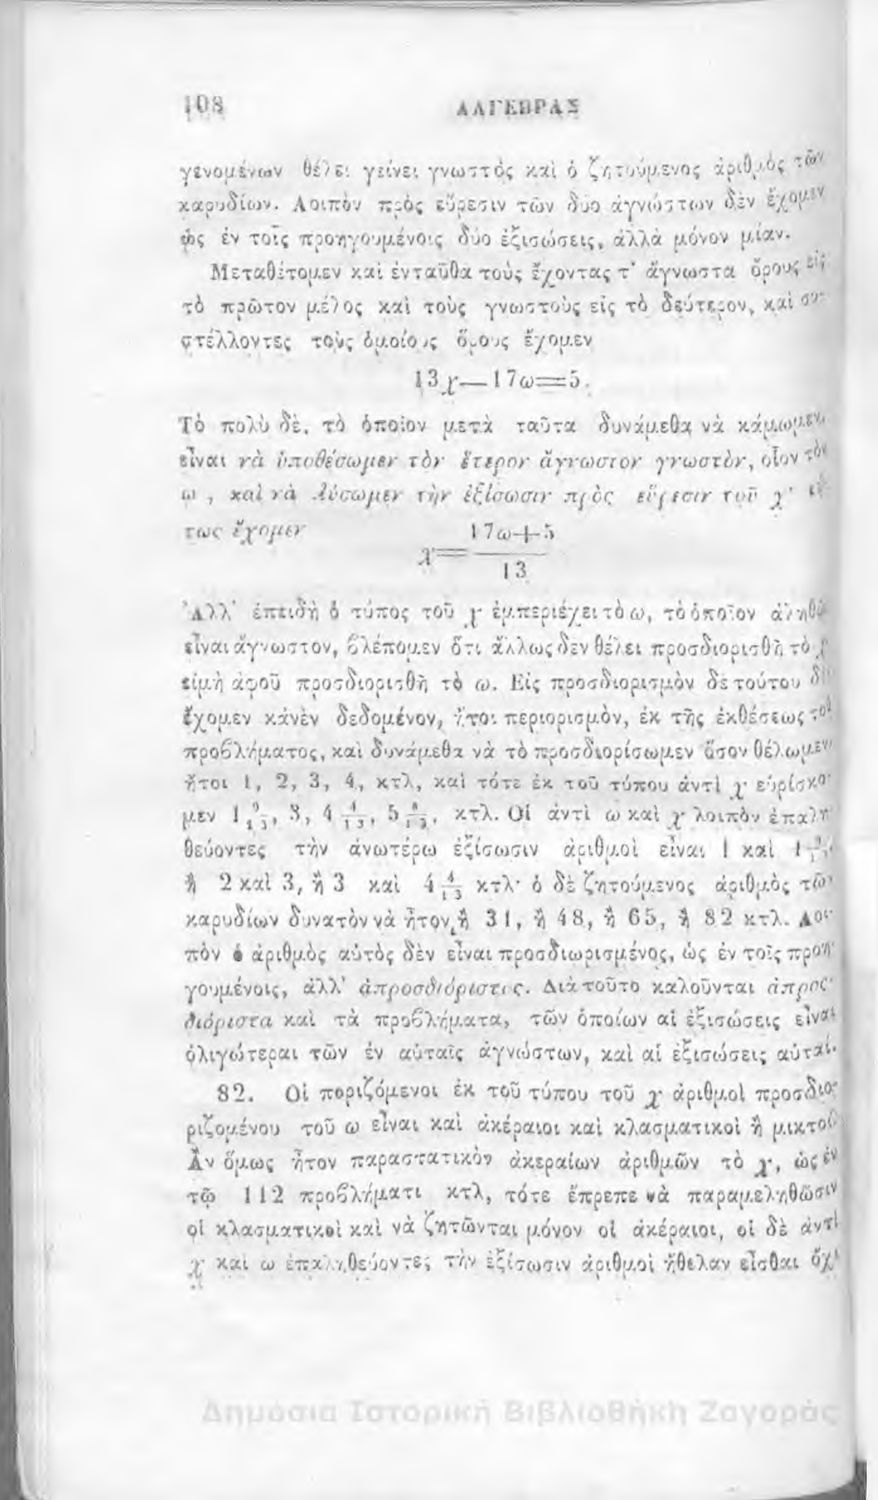 108 ΑΛΓΕΒΡΑΣ
γενομένων θέλει γείνει γνωστός καὶ ὁ ζητούμενος ἀριθμὸς τῶν
καρυδίων. Λοιπὸν πρὸς εὕρεσιν τῶν δύο ἀγνώστων δὲν ἔχομεν
ὡς ἐν τοῖς προηγουμένοις δύο ἐξισώσεις, ἀλλὰ μόνον μίαν.
Μεταθέτομεν καὶ ἐνταῦθα τοὺς ἔχοντας τ' ἄγνωστα ὅρους εἰς
τὸ πρῶτον μέλος καὶ τοὺς γνωστοὺς εἰς τὸ δεύτερον, καὶ συ-
στέλλοντες τοὺς ὁμοίους ὅρους ἔχομεν
13χ—17ω=5.
Τὸ πολὺ δὲ, τὸ ὁποῖον μετὰ ταῦτα δυνάμεθα νὰ κάμωμεν,
εἶναι νὰ ὑποθέσωμεν τὸν ἕτερον ἄγνωστον γνωστὸν, οἷον τὸν
ω , καὶ νὰ λύσωμεν τὴν ἐξίσωσιν πρὸς εὕρεσιν τοῦ χ·
τως ἔχομεν 17ω+5
χ=
13
Ἀλλ' ἐπειδὴ ὁ τύπος τοῦ χ ἐμπεριέχει τὸ ω, τὸ ὁποῖον ἀληθῶς
εἶναι ἄγνωστον, βλέπομεν ὅτι ἄλλως δὲν θέλει προσδιορισθῆ τὸ χ
εἰμὴ ἀφοῦ προσδιορισθῆ τὸ ω. Εἰς προσδιορισμὸν δὲ τούτου δὲν
ἔχομεν κἀνὲν δεδομένον, ἤτοι περιορισμὸν, ἐκ τῆς ἐκθέσεως τοῦ
προβλήματος, καὶ δυνάμεθα νὰ τὸ προσδιορίσωμεν ὅσον θέλωμεν
ἤτοι 1, 2, 3, 4, κτλ, καὶ τότε ἐκ τοῦ τύπου ἀντὶ χ εὑρίσκο-
μεν 1 9/13, 3, 4 4/13, 5 8/13, κτλ. Οἱ ἀντὶ ω καὶ χ λοιπὸν ἐπαλη-
θεύοντες τὴν ἀνωτέρω ἐξίσωσιν ἀριθμοὶ εἶναι 1 καὶ 1 9/13,
ἢ 2 καὶ 3, ἢ 3 καὶ 4 4/13 κτλ· ὁ δὲ ζητούμενος ἀριθμὸς τῶν
καρυδίων δυνατὸν νὰ ἦτον ἢ 31, ἢ 48, ἢ 65, ἢ 82 κτλ. Λοι-
πὸν ὁ ἀριθμὸς αὐτὸς δὲν εἶναι προσδιωρισμένος, ὡς ἐν τοῖς προη-
γουμένοις, ἀλλ' ἀπροσδιόριστος. Διὰ τοῦτο καλοῦνται ἀπροσ-
διόριστα καὶ τὰ προβλήματα, τῶν ὁποίων αἱ ἐξισώσεις εἶναι
ὀλιγώτεραι τῶν ἐν αὐταῖς ἀγνώστων, καὶ αἱ ἐξισώσεις αὐταί.
82. Οἱ ποριζόμενοι ἐκ τοῦ τύπου τοῦ χ ἀριθμοὶ προσδιο-
ριζομένου τοῦ ω εἶναι καὶ ἀκέραιοι καὶ κλασματικοὶ ἢ μικτοί
Ἂν ὅμως ἦτον παραστατικὸν ἀκεραίων ἀριθμῶν τὸ χ, ὡς ἐν
τῷ 112 προβλήματι κτλ, τότε ἔπρεπε νὰ παραμεληθῶσιν
οἱ κλασματικοὶ καὶ νὰ ζητῶνται μόνον οἱ ἀκέραιοι, οἱ δὲ ἀντὶ
χ καὶ ω ἐπαληθεύοντες τὴν ἐξίσωσιν ἀριθμοὶ ἤθελαν εἶσθαι ὄχι
Δημόσια Ιστορική Βιβλιοθήκη Ζαγοράς